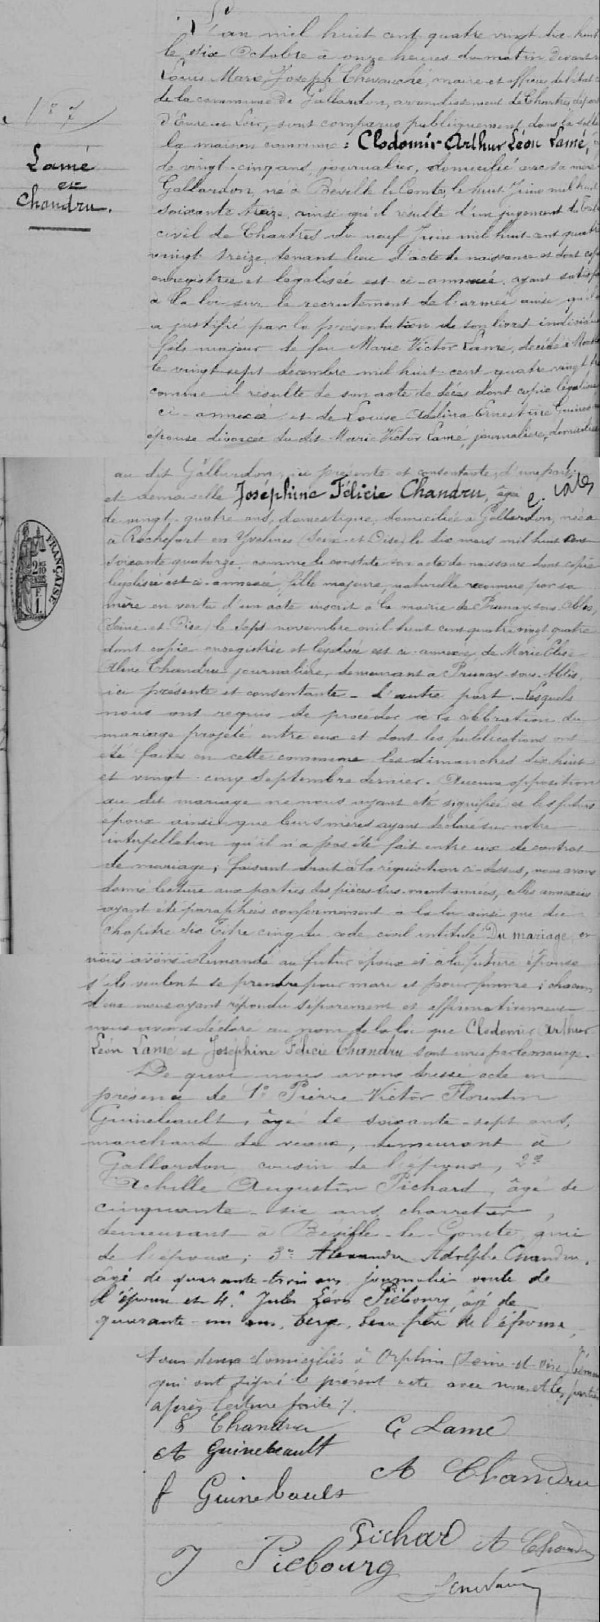 L'an mil huit cent quatre vingt dix huit
le dix Octobre à onze heures du matin Devant
Louis Marie Joseph maire et officier de l'état
de la commune de Gallardon, arrondissement de Chartres, dépar
d'Eure et Loir, sont comparus publiquement dans la salle
la maison commune : Clodomir Arthur Léon Lamé,
de vingt-cinq ans, journalier, domicilié avec sa mère
Gallardon, né à Béville le Comte, le huit Juin mil huit
soixante treize, ainsi qu'il résulte d'un jugement du Trib
civil de Chartres du neuf Juin mil huit cent quatre
vingt treize tenant lieu d'acte de naissance et dont cop
enregistrée et légalisée est ci-annexée, ayant satisf
à la loi sur le recrutement de l'armée ainsi qu'il
a justifié par la présentation de son livret individuel
fils majeur de feu Marie Victor Lamé, décédé à
le vingt sept décembre mil huit cent quatre vingt
comme il résulte de son acte de décès dont copie légalisée
ci-annexée et de Louise Ernestine
épouse divorcée du dit Marie Victor Lamé, journalière, demeurant
137
Lamé
et
Chandru.
au dit Gallardon, ici présente et consentante, d'une part,
et demoiselle Joséphine Félicie Chandru, âgée
de vingt-quatre ans, domestique, domiciliée à Gallardon, née
à Rochefort en Yvelines (Seine et Oise), le dix mars mil huit cent
soixante quatorze, comme le constate son acte de naissance dont copie
légalisée est ci-annexée fille majeure, naturelle reconnue par sa
mère en vertu d'un acte inscrit à la mairie de Prunay sous Ablis,
Seine et Oise, le sept novembre mil huit cent quatre vingt quatre
dont copie enregistrée et légalisée est ci annexée, de Marie
Aline Chandru journalière, demeurant à Prunay sous Ablis,
ici présente et consentante - d'autre part. Lesquels
nous ont requis de procéder à la célébration du
mariage projeté entre eux et dont les publications ont
été faites en cette commune les dimanches dix huit
et vingt cinq Septembre dernier. Aucune opposition
au dit mariage ne nous ayant été signifiée et les futurs
époux ainsi que leurs mères ayant déclaré sur notre
interpellation qu'il n'a pas été fait entre eux de contrat
de mariage; faisant droit à la réquisition ci-dessus, nous avons
donné lecture aux parties des pièces sus-mentionnées, elles annexées
ayant été paraphées conformément à la loi ainsi que du
chapitre six titre cinq du code civil intitulé Du mariage, et
nous avons demandé au futur époux et à la future épouse
s'ils veulent se prendre pour mari et pour femme ; chacun
d'eux nous ayant répondu séparément et affirmativement
nous avons déclaré au nom de la loi que Clodomir Arthur
Léon Lamé et Joséphine Félicie Chandru sont unis par le mariage.
De quoi nous avons dressé acte en
présence de 1° Pierre Victor Florentin
Guinebault, âgé de soixante-sept ans,
marchand de veaux, demeurant à
Gallardon, cousin de l'époux, 2°
Achille Augustin Pichard, âgé de
cinquante-six ans, charretier,
demeurant à Béville-le-Comte, ami
de l'époux; 3° Alexandre Adolphe Chandru,
âgé de quarante-trois ans, journalier oncle de
l'épouse et 4° Jules Léon Piébourg, âgé de
quarante-un ans, berger, beau-père de l'épouse,
tous deux domiciliés à Orphin (Seine-et-Oise), témoins
qui ont signé le présent acte avec nous et les parties
après lecture faite ./.
F Chandru
C Lamé
A Guinebault
A Chandru
f Guinebault
Pichard
A Chandru
J Piebourg
FRANÇAISE